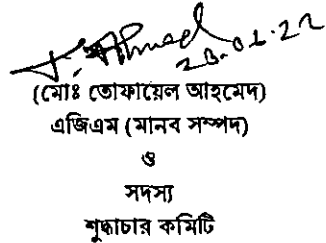 T. Ahmed
23.01.22
(মোঃ তোফায়েল আহমেদ)
এজিএম (মানব সম্পদ)
ও
সদস্য
শুদ্ধাচার কমিটি